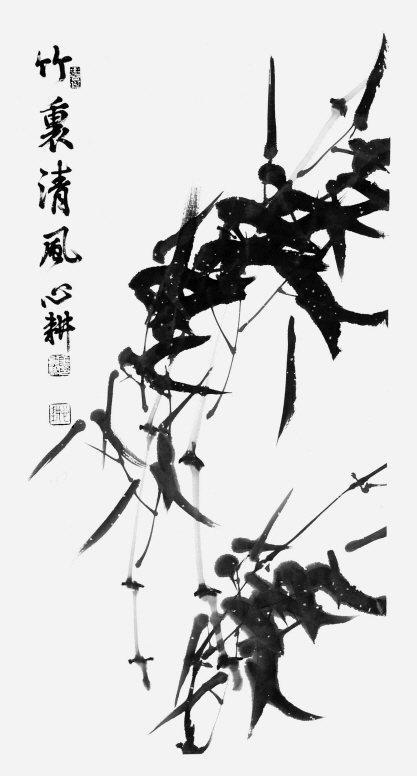 竹裏清風心耕